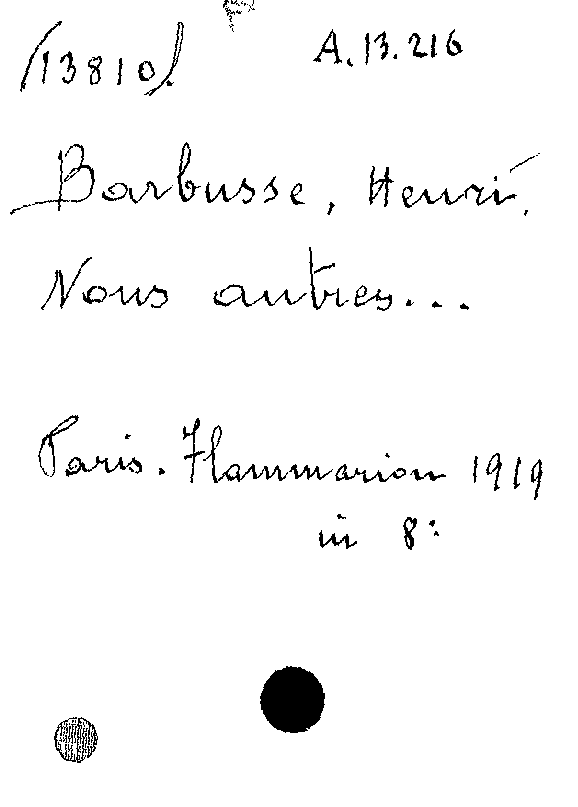 (13810). A.13.216
Barbusse, Henri.
Nous autres...
Paris. Flammarion 1919
in 8: